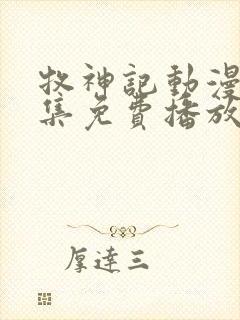 牧神記動漫
集免費播放
厚達三